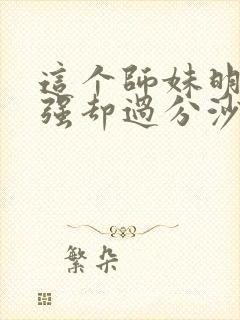 這个師妹明
强却過分沙
繁朵